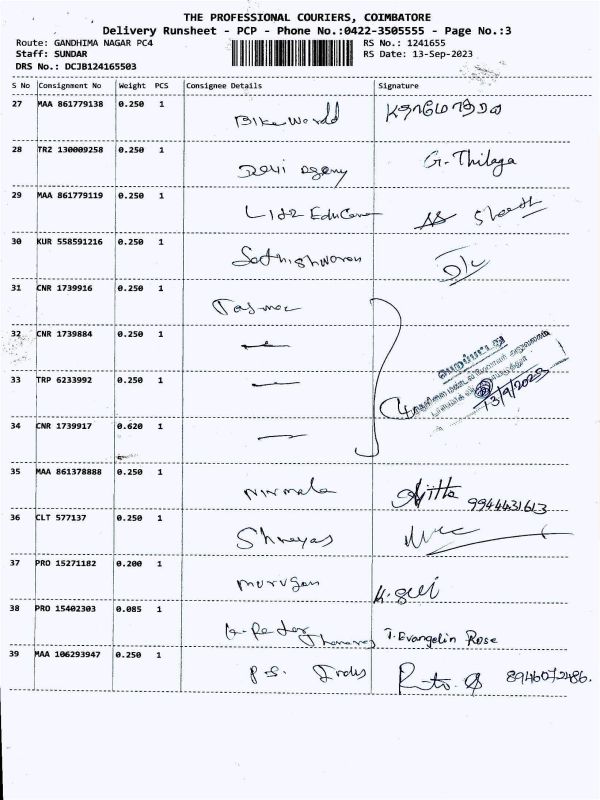 THE PROFESSIONAL COURIERS, COIMBATORE
Delivery Runsheet - PCP - Phone No.:0422-3505555 - Page No.:3
Route: GANDHIMA NAGAR PC4 RS No.: 1241655
Staff: SUNDAR RS Date: 13-Sep-2023
DRS No.: DCJB124165503
S No Consignment No Weight PCS Consignee Details Signature
27 MAA 861779138 0.250 1 Bike World
28 TRZ 130009258 0.250 1 Devi Agency G. Thilaga
29 MAA 861779119 0.250 1
30 KUR 558591216 0.250 1 Sathishwaran
31 CNR 1739916 0.250 1 Tasmac
32 CNR 1739884 0.250 1
33 TRP 6233992 0.250 1
பெறப்பட்டது
13/9/2023
34 CNR 1739917 0.620 1
35 MAA 861378888 0.250 1 Nirmala 9944431613
36 CLT 577137 0.250 1 Shreyas
37 PRO 15271182 0.200 1 Murugan
38 PRO 15402303 0.085 1 T. Evangelin Rose
39 MAA 106293947 0.250 1 P.S. 8946072486.